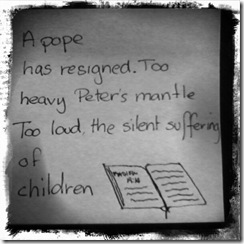 A pope
has resigned. Too
heavy Peter's mantle
Too loud, the silent suffering
of
children